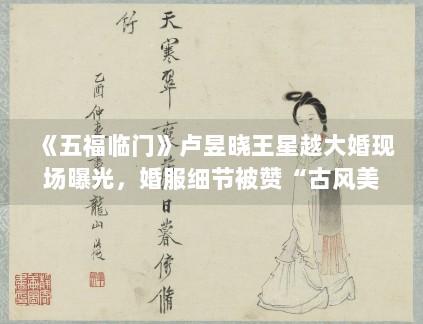 天寒翠日暮倚脩
竹
乙酉仲龍山
《五福临门》卢昱晓王星越大婚现
场曝光，婚服细节被赞“古风美